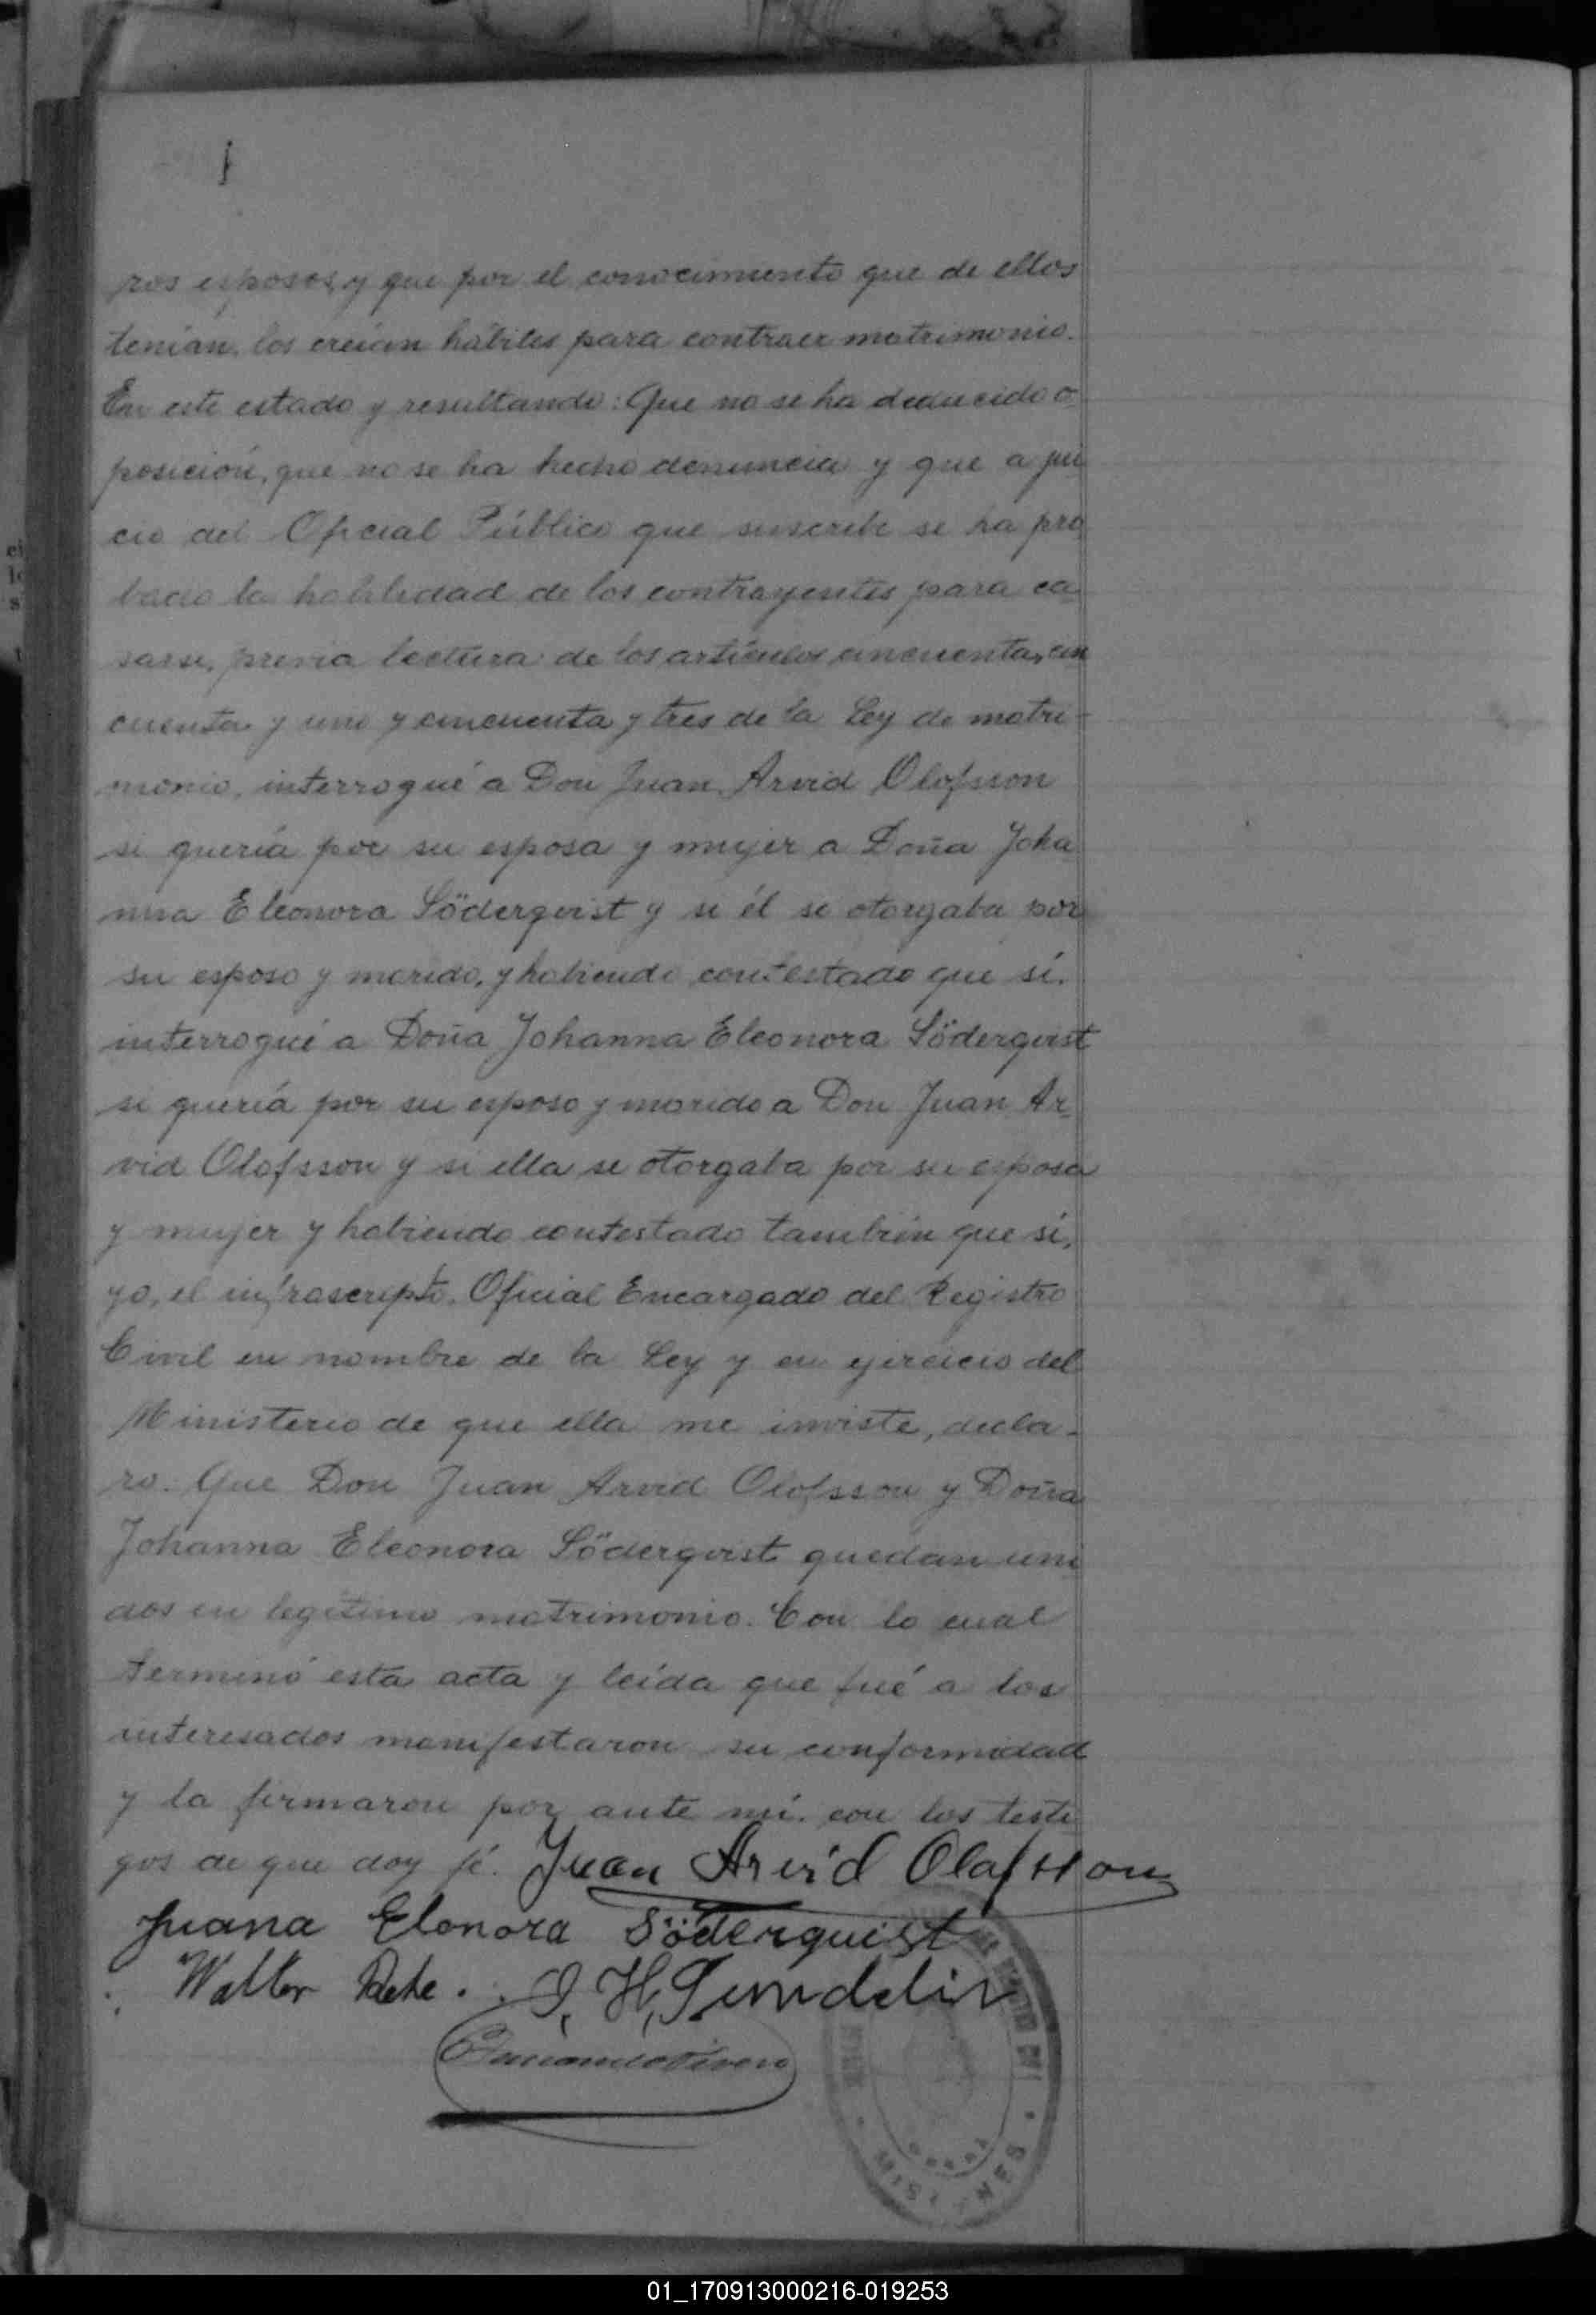 ros esposos, y que por el conocimiento que de ellos
tenían, los creían hábiles para contraer matrimonio.
En este estado y resultando: Que no se ha deducido o
posición, que no se ha hecho denuncia y que a jui
cio del Oficial Público que suscribe se ha pro
bado la habilidad de los contrayentes para ca
sarse, previa lectura de los artículos cincuenta, cin
cuenta y uno y cincuenta y tres de la Ley de matri-
monio, interrogué a Don Juan Arvid Olofsson
si quería por su esposa y mujer a Doña Joha
nna Eleonora Söderqvist y si él se otorgaba por
su esposo y marido, y habiendo contestado que sí.
interrogué a Doña Johanna Eleonora Söderqvist
si quería por su esposo y marido a Don Juan Ar-
vid Olofsson y si ella se otorgaba por su esposa
y mujer y habiendo contestado también que sí,
yo, el infrascripto, Oficial Encargado del Registro
Civil en nombre de la Ley y en ejercicio del
Ministerio de que ella me inviste, decla-
ro: Que Don Juan Arvid Olofsson y Doña
Johanna Eleonora Söderqvist quedan uni
dos en legítimo matrimonio. Con lo cual
terminó esta acta y leída que fué a los
interesados manifestaron su conformidad
y la firmaron por ante mí. con los testi
gos de que doy fé. Juan Arvid Olafsson
Juana Elonora Söderquist
Walter J. H. Sundelin
MISIONES
01_170913000216-019253